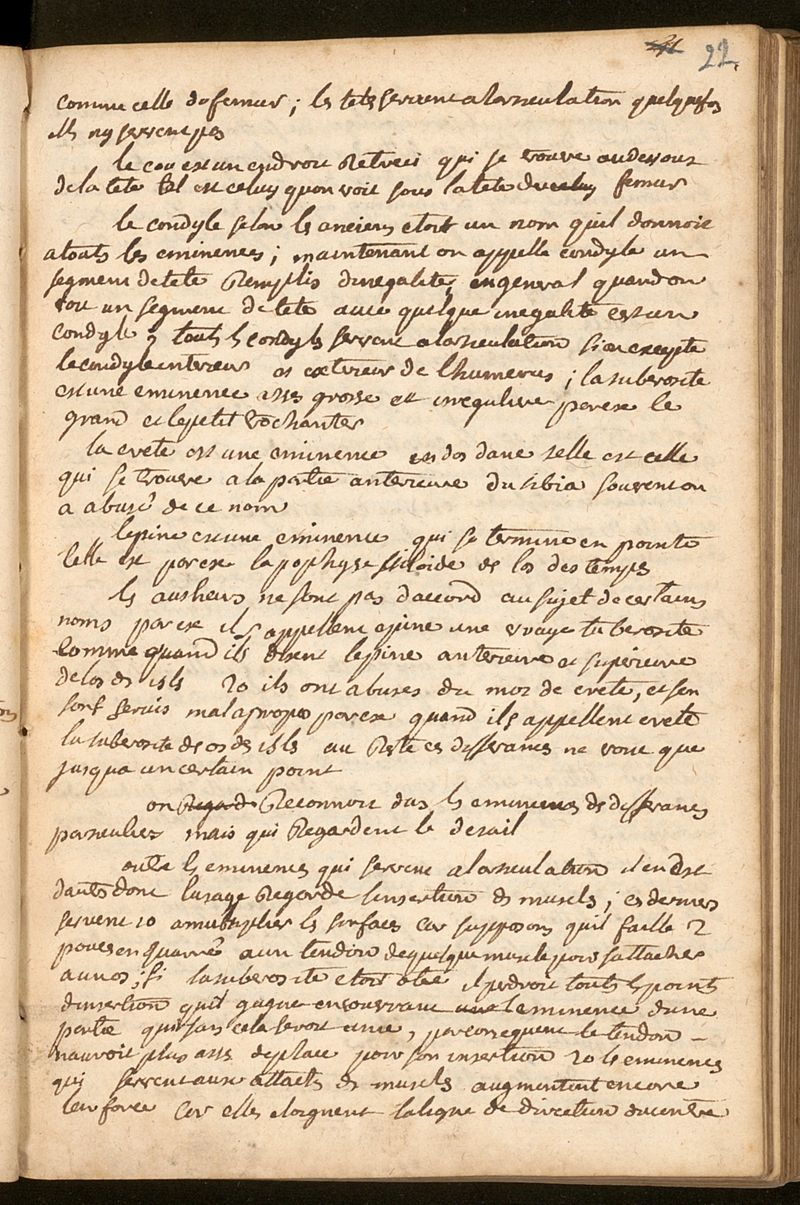 22
comme celle du femur ; les tetes servent a larticulation quelquefois
elles ny servent pas
le cou est un endroit Retreci qui se trouve audessous
de la tete tel est celuy quon voit sous la tete du femur
le condyle selon les anciens etoit un nom quil donnoit
a touts les eminences ; maintenant on appelle condyle un
segment de tete Remplis dinegalite, en general quand on
voit un segment de tete avec quelque inegalite cest un
condyle, touts les condyles servent a larticulation si on excepte
le condyle interieur et exterieur de lhumerus ; la tuberosite
est une eminence asses grosse et irreguliere par exe le
grand et le petit trochanter
la crete est une eminence en dos dane telle est celle
qui se trouve a la partie anterieure du tibia souvent on
a abusé de ce nom
lepine est une eminence qui se termine en pointe
telle est par exe lapophyse stiloide de los des temps
les autheurs ne sont pas daccord au sujet de certains
noms par exe ils appellent epine une vraye tuberosite
comme quand ils disent lepine anterieure et superieure
de los des isles 2o ils ont abuses du mot de crete, et sen
sont servis mal apropos par exe quand ils appellent crete
la tuberosite des os des isles au Reste ces differances ne vont que
jusqua un certain point
on Regarde Reconnoit dans les eminences des differances
particulieres mais qui Regardent le detail
outre les eminences qui servent a larticulation il en est
dautres dont lusage Regarde linsertion des muscles ; ces derniers
servent 1o a multiplier les surfaces car supposons quil faille 2
pouces en quarré a un tendon de quelque muscle pour sattacher
a un os ; si la tuberosite etoit otée il perdroit touts les points
dinsertion quil gagne en couvrant leminence dune
partie qui sans cela seroit unie, par consequent le tendon
nauroit plus asses de place pour son insertion 2o les eminences
qui servent aux attaches des muscles augmentent encore
leur force car elles eloignent la ligne de direction du centre